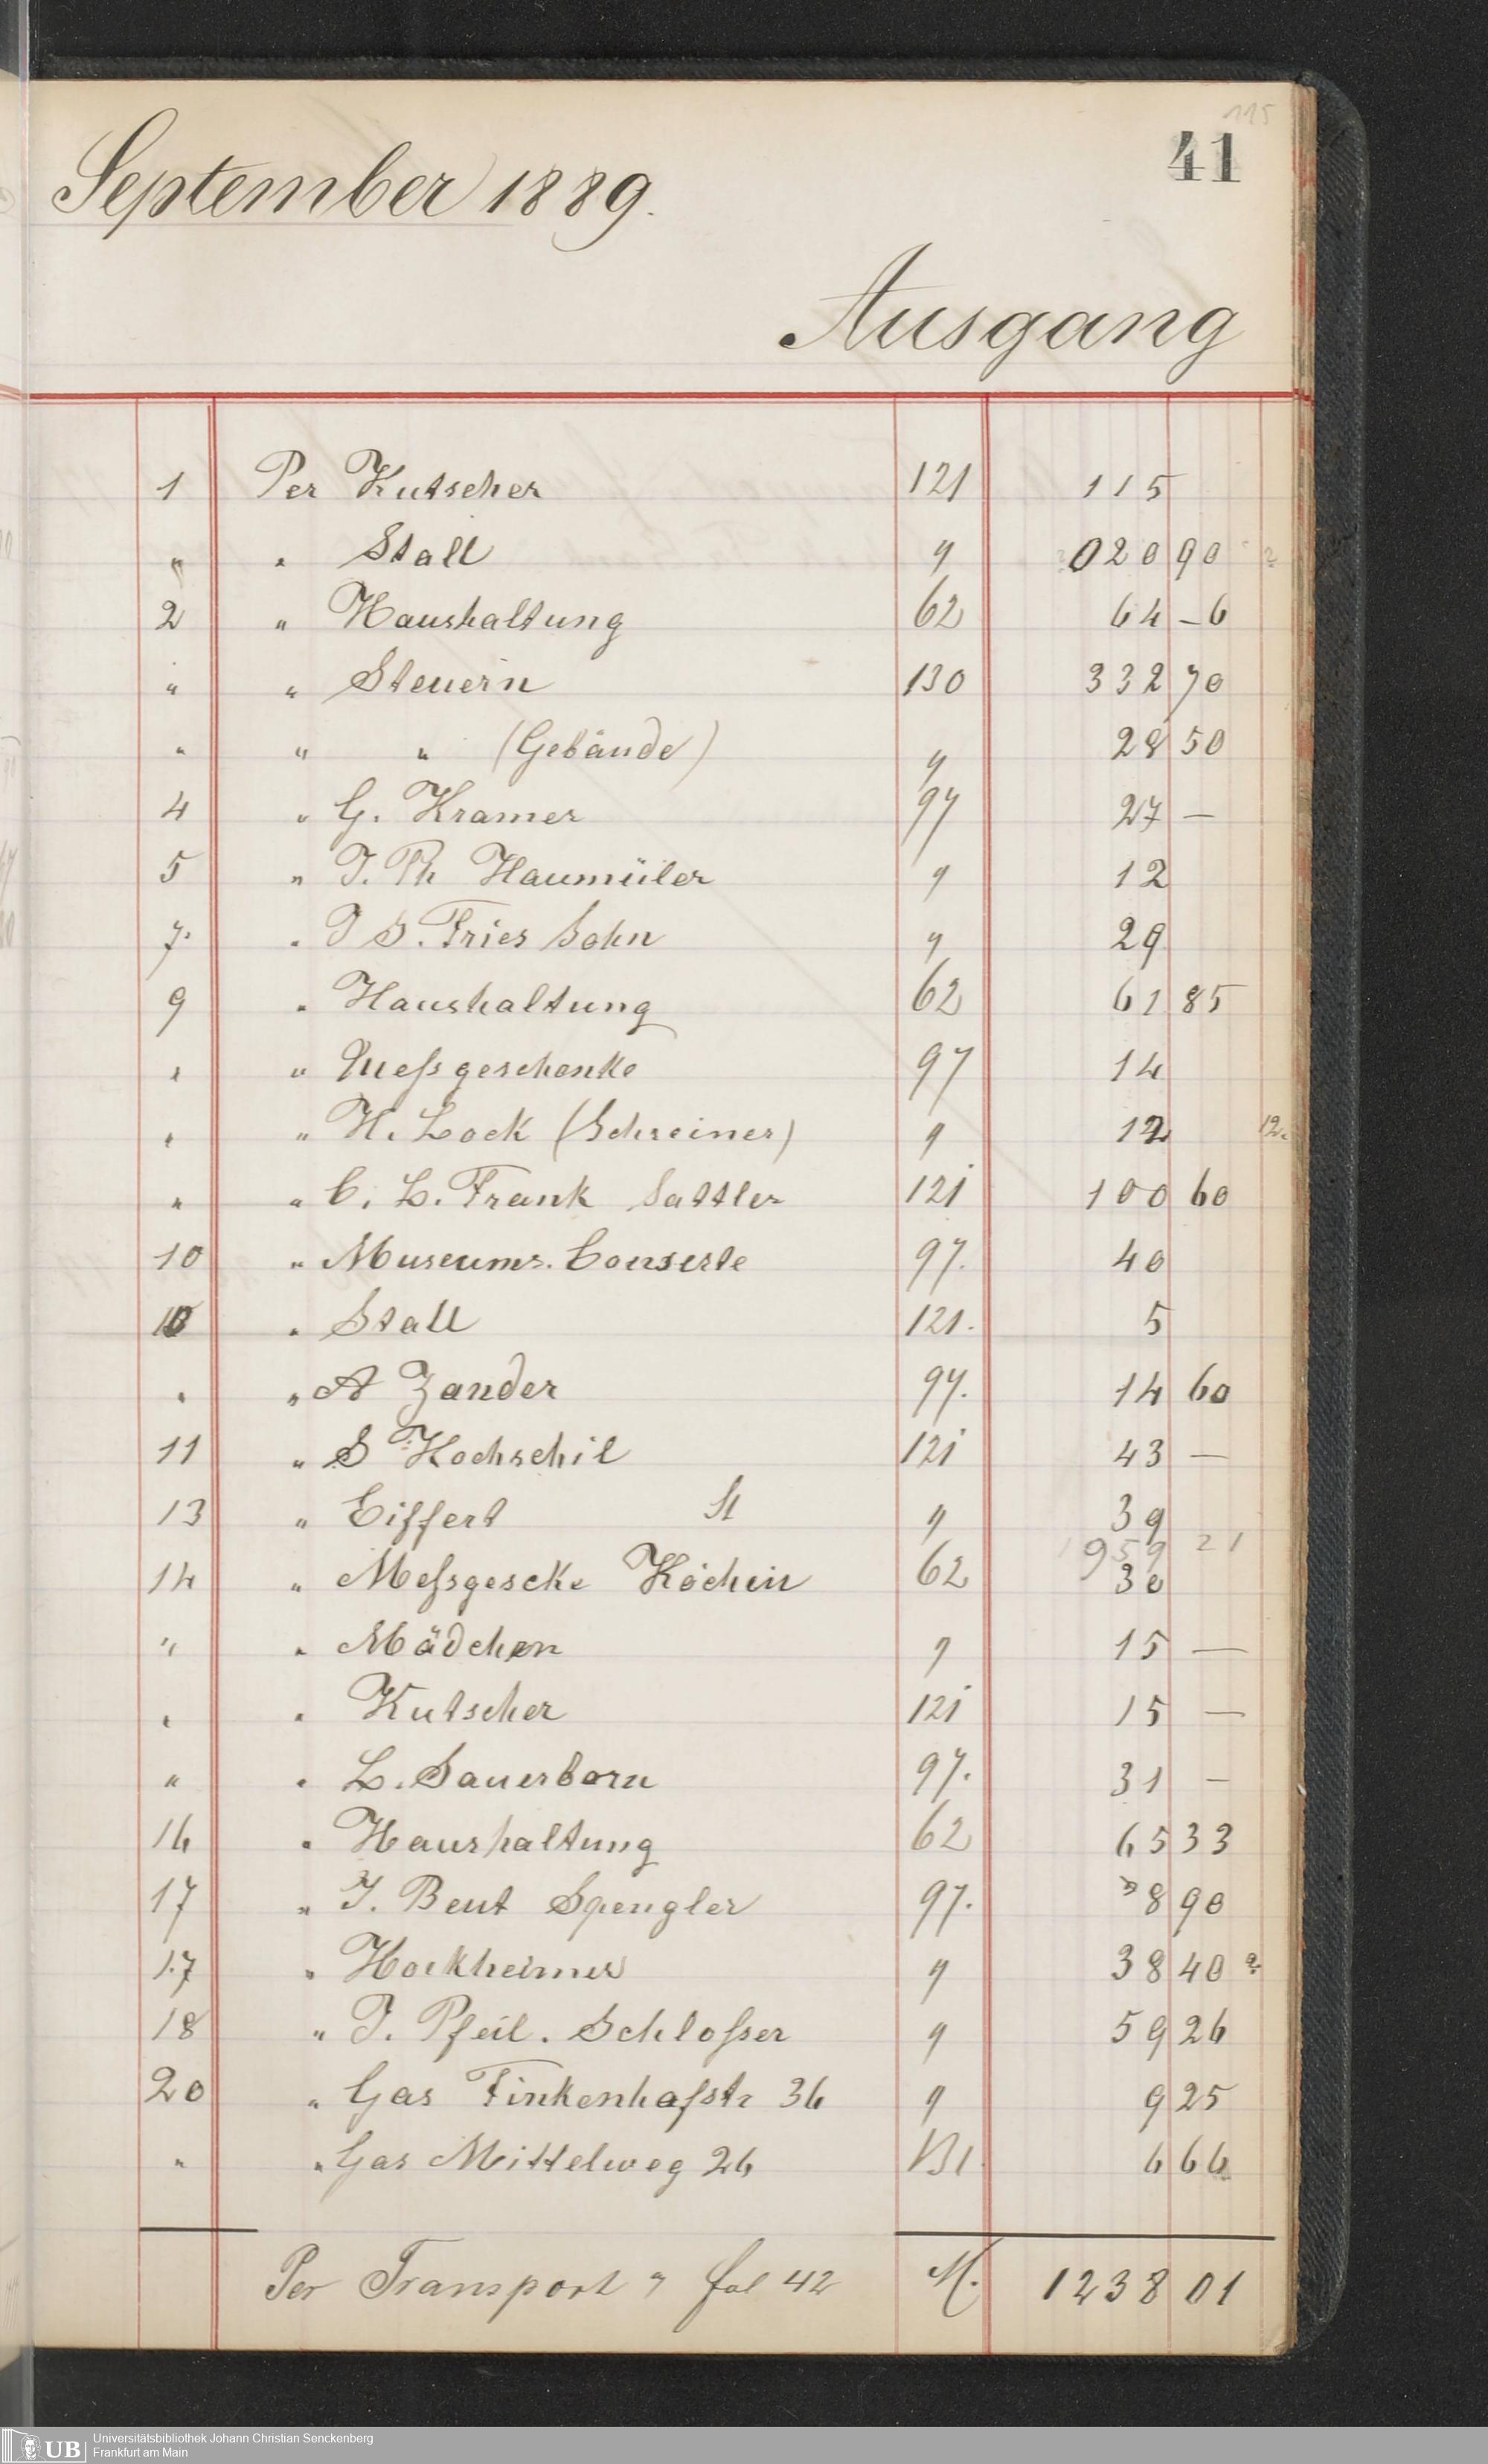 115
41
September 1889.
Ausgang
1 Per Kutscher 121 115
" " Stall " 020 90
2 " Haushaltung 62 64 - 6
" " Steuern 130 332 70
" " " (Gebäude) " 28 50
4 " G. Kramer 97 27 —
5 " J. Ph Haumüller " 12
7. " J S. Fries Sohn " 29
9 " Haushaltung 62 61 85
" " Meßgeschenke 97 14
" " H. Lock (Schreiner) " 12 12.
" " C. L. Frank Sattler 121 100 60
10 " Museums. Conzerte 97. 40
10 " Stall 121. 5
" " A Zander 97. 14 60
11 " S Hochschil 121 43 —
13 " Eiffert St " 39
959 21
14 " Meßgescke Köchin 62 30
" " Mädchen " 15 —
" " Kutscher 121 15 —
" " L. Sauerborn 97. 31 —
16 " Haushaltung 62 65 33
17 " J. Beut Spengler 97. 8 90
17 " Hockheimer " 38 40
18 " J. Pfeil. Schloßer " 59 26
20 " Gas Finkenhofstr 36 " 9 25
" " Gas Mittelweg 26 131 6 66
Per Transport " fol 42 M. 1238 01
UB
Universitätsbibliothek Johann Christian Senckenberg
Frankfurt am Main